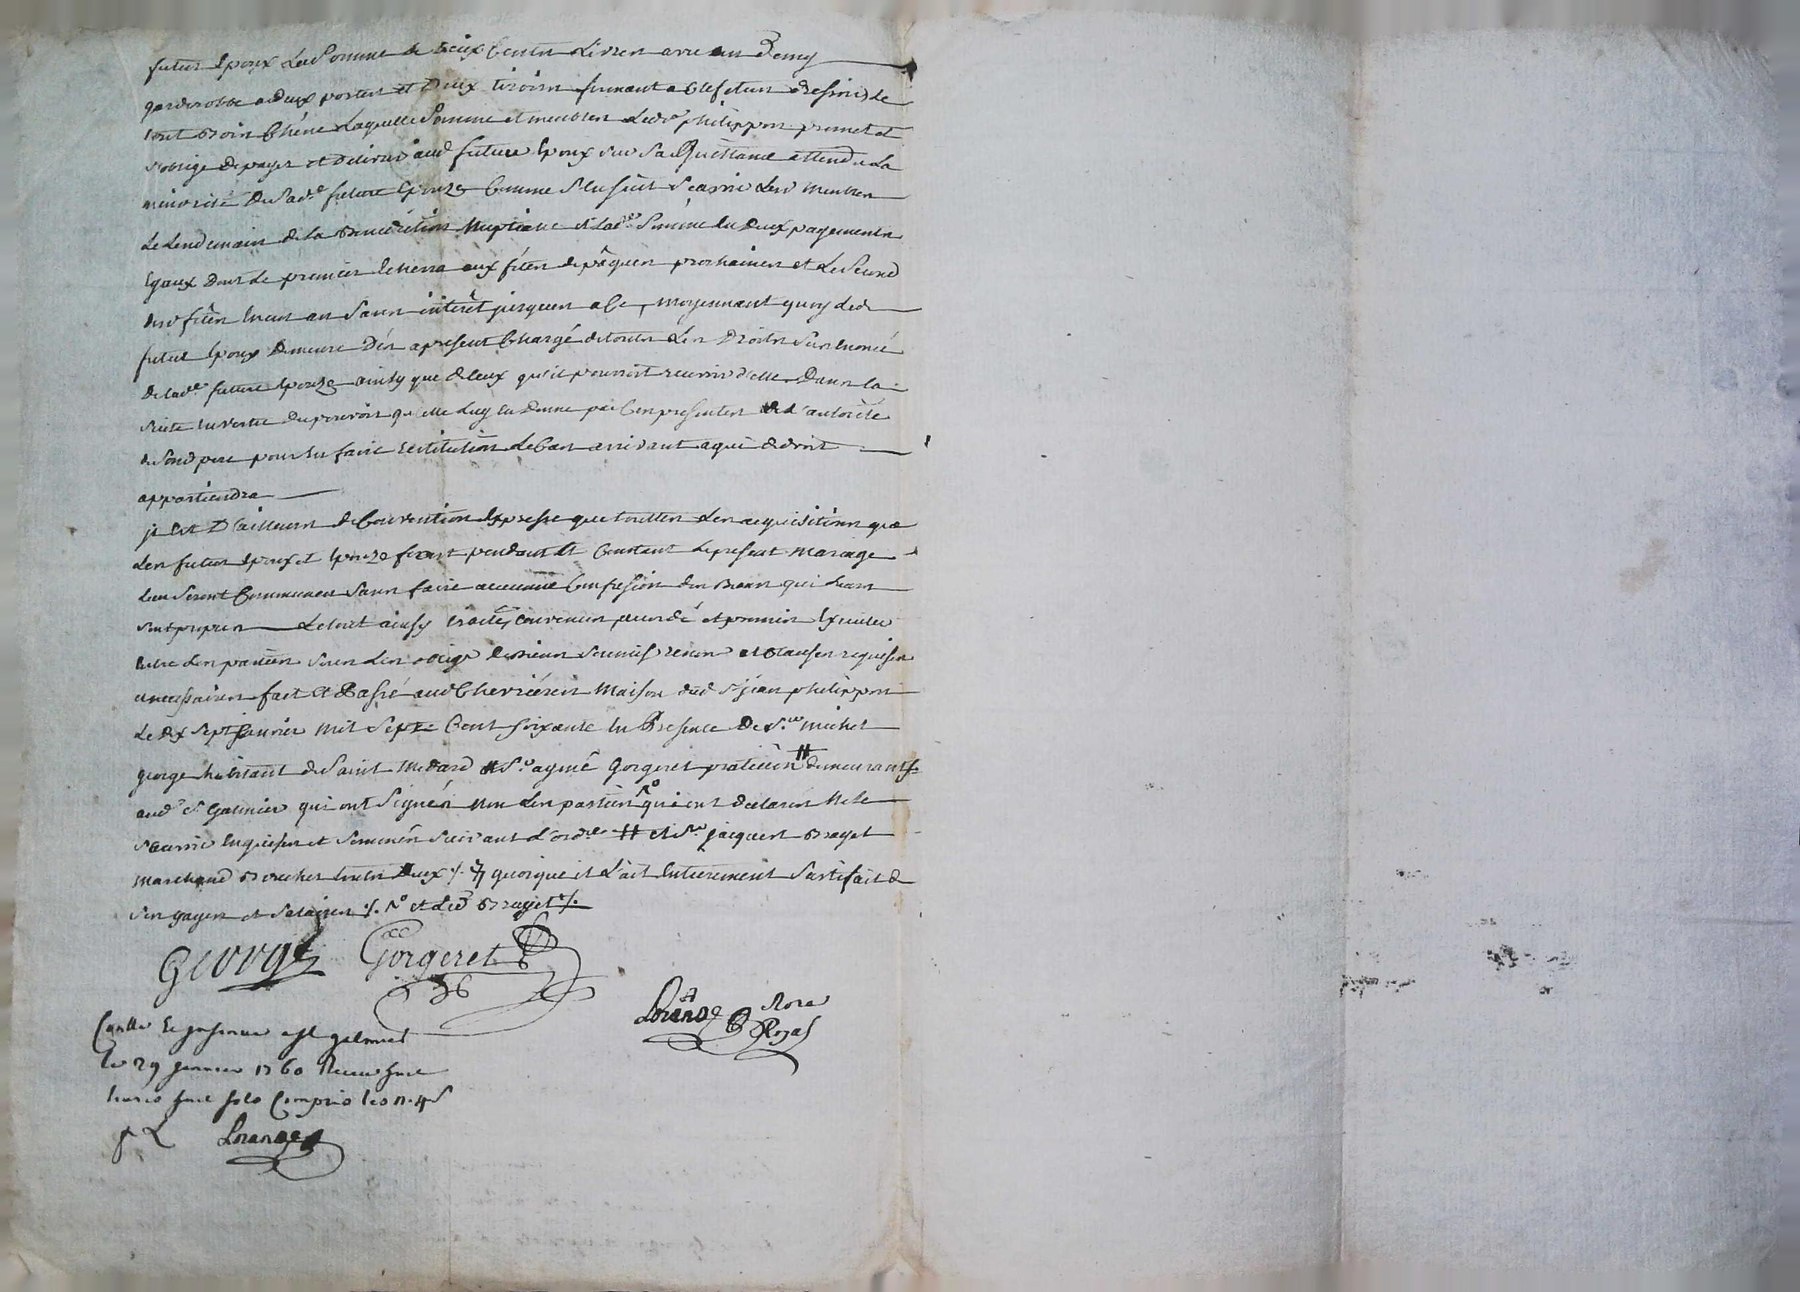 futur Epoux La Somme de deux Cents Livres avec un Demy
garderobbe a deux portes et Deux tiroirs fermant a Clef et un dressoir Le
tout Bois Chêne Laquelle Somme et meubles Led. philippon promet et
s'oblige De payer et Delivrer aud. futur Epoux sur Sa quittance attendu La
minorité De Lad.e future Epouze Comme S'ensuit Scavoir Lesd. meubles
Le Lendemain de la Benediction Nuptialle et Lad.e Somme En Deux payements
Egaux Dont Le premier Echerra aux fêtes de pâques prochaines et Le Second
aux fêtes En un an Sans intérêt jusques a Ce, moyennant quoy Led.
futur Epoux Demeure Dés apresent Chargé de toutes Les Droits Sus Enoncé
De Lad.e future Epouze ainsy que de Ceux qu'il pourroit recevoir d'elle Dans la
suite En vertu Du pouvoir qu'elle Luy En Donne par Ces presentes de L'autorité
de Sond. pere pour En faire restitution Le Cas arrivant a qui de droit
appartiendra
il Est D'ailleurs de Convention Expresse que touttes Les acquisitions que
Les futurs Epoux et Epouze feront pendant et Constant Le present Mariage
Leur Seront Communes Sans faire aucunne Confusion des Biens qui Leurs
sont propres Le tout ainsy traité, convenu, accordé et promis Executer
Entre Les parties sous Les oblig. De Biens soumis. renon. et Clauses requises
et necessaires fait et Passé aud. Chevrières Maison dud. S. jean philippon
Le dix Sept janvier mil Sept Cent Soixante En Presence De S.r michel
george habitant de Saint Medard # S.r aymé Gorgeret praticien # demeurants
aud. St Galmier qui ont Signés non Les parties qui ont declarés ne Le
Scavoir Enquises et Sommés Suivant L'ord.e # et S.r jacques Brayet
Marchand Boucher Entre Deux ⁒ quoique il L'ait Entierement Satisfait de
Ses gages et Salaires ⁒ et Led. Brayet ⁒
George Gorgeret
Lorande
Nore
Royal
Conllé Et insinué a St galmier
Le 29 janvier 1760 Receu
Lorande